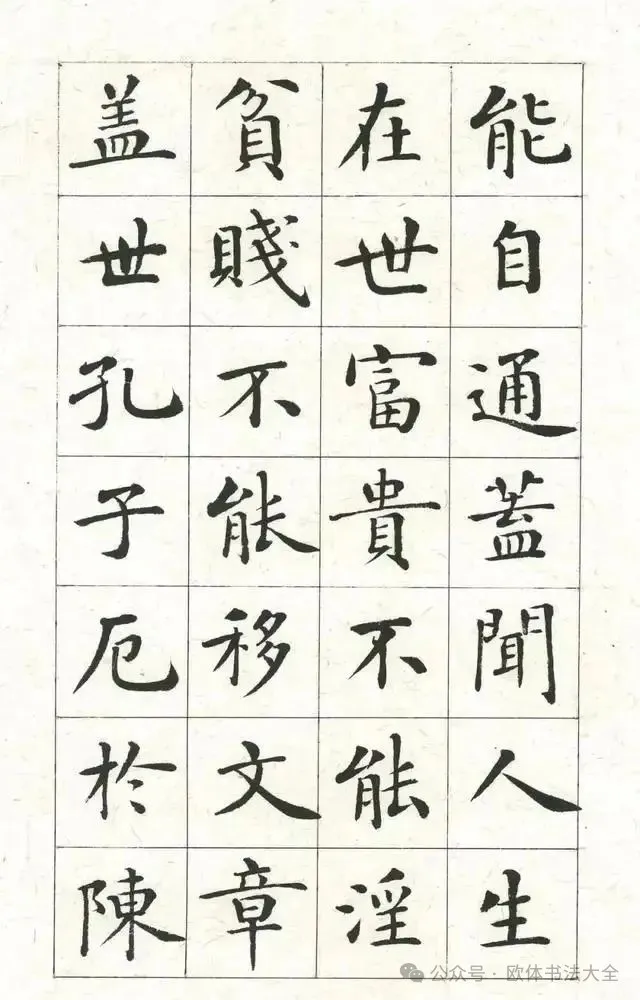 能自通蓋聞人生
在世富貴不能淫
貧賤不能移文章
盖世孔子厄於陳
公众号·欧体书法大全